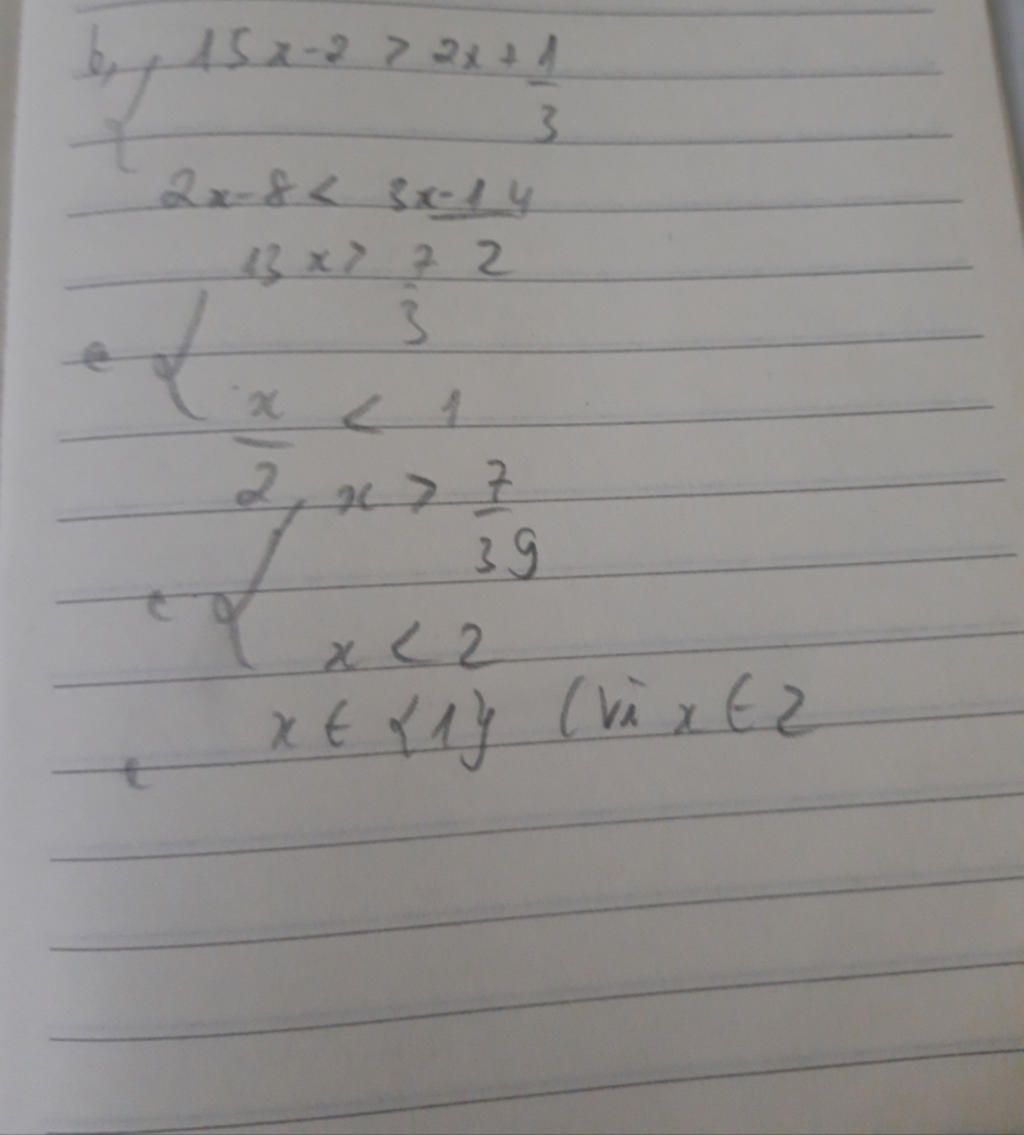 b, 15x-2 > 2x + 1
3
2x-8 < 3x-14
2
13x > 7
3
x < 1
2
x > 7
39
x < 2
x ∈ {1} (vì x ∈ Z